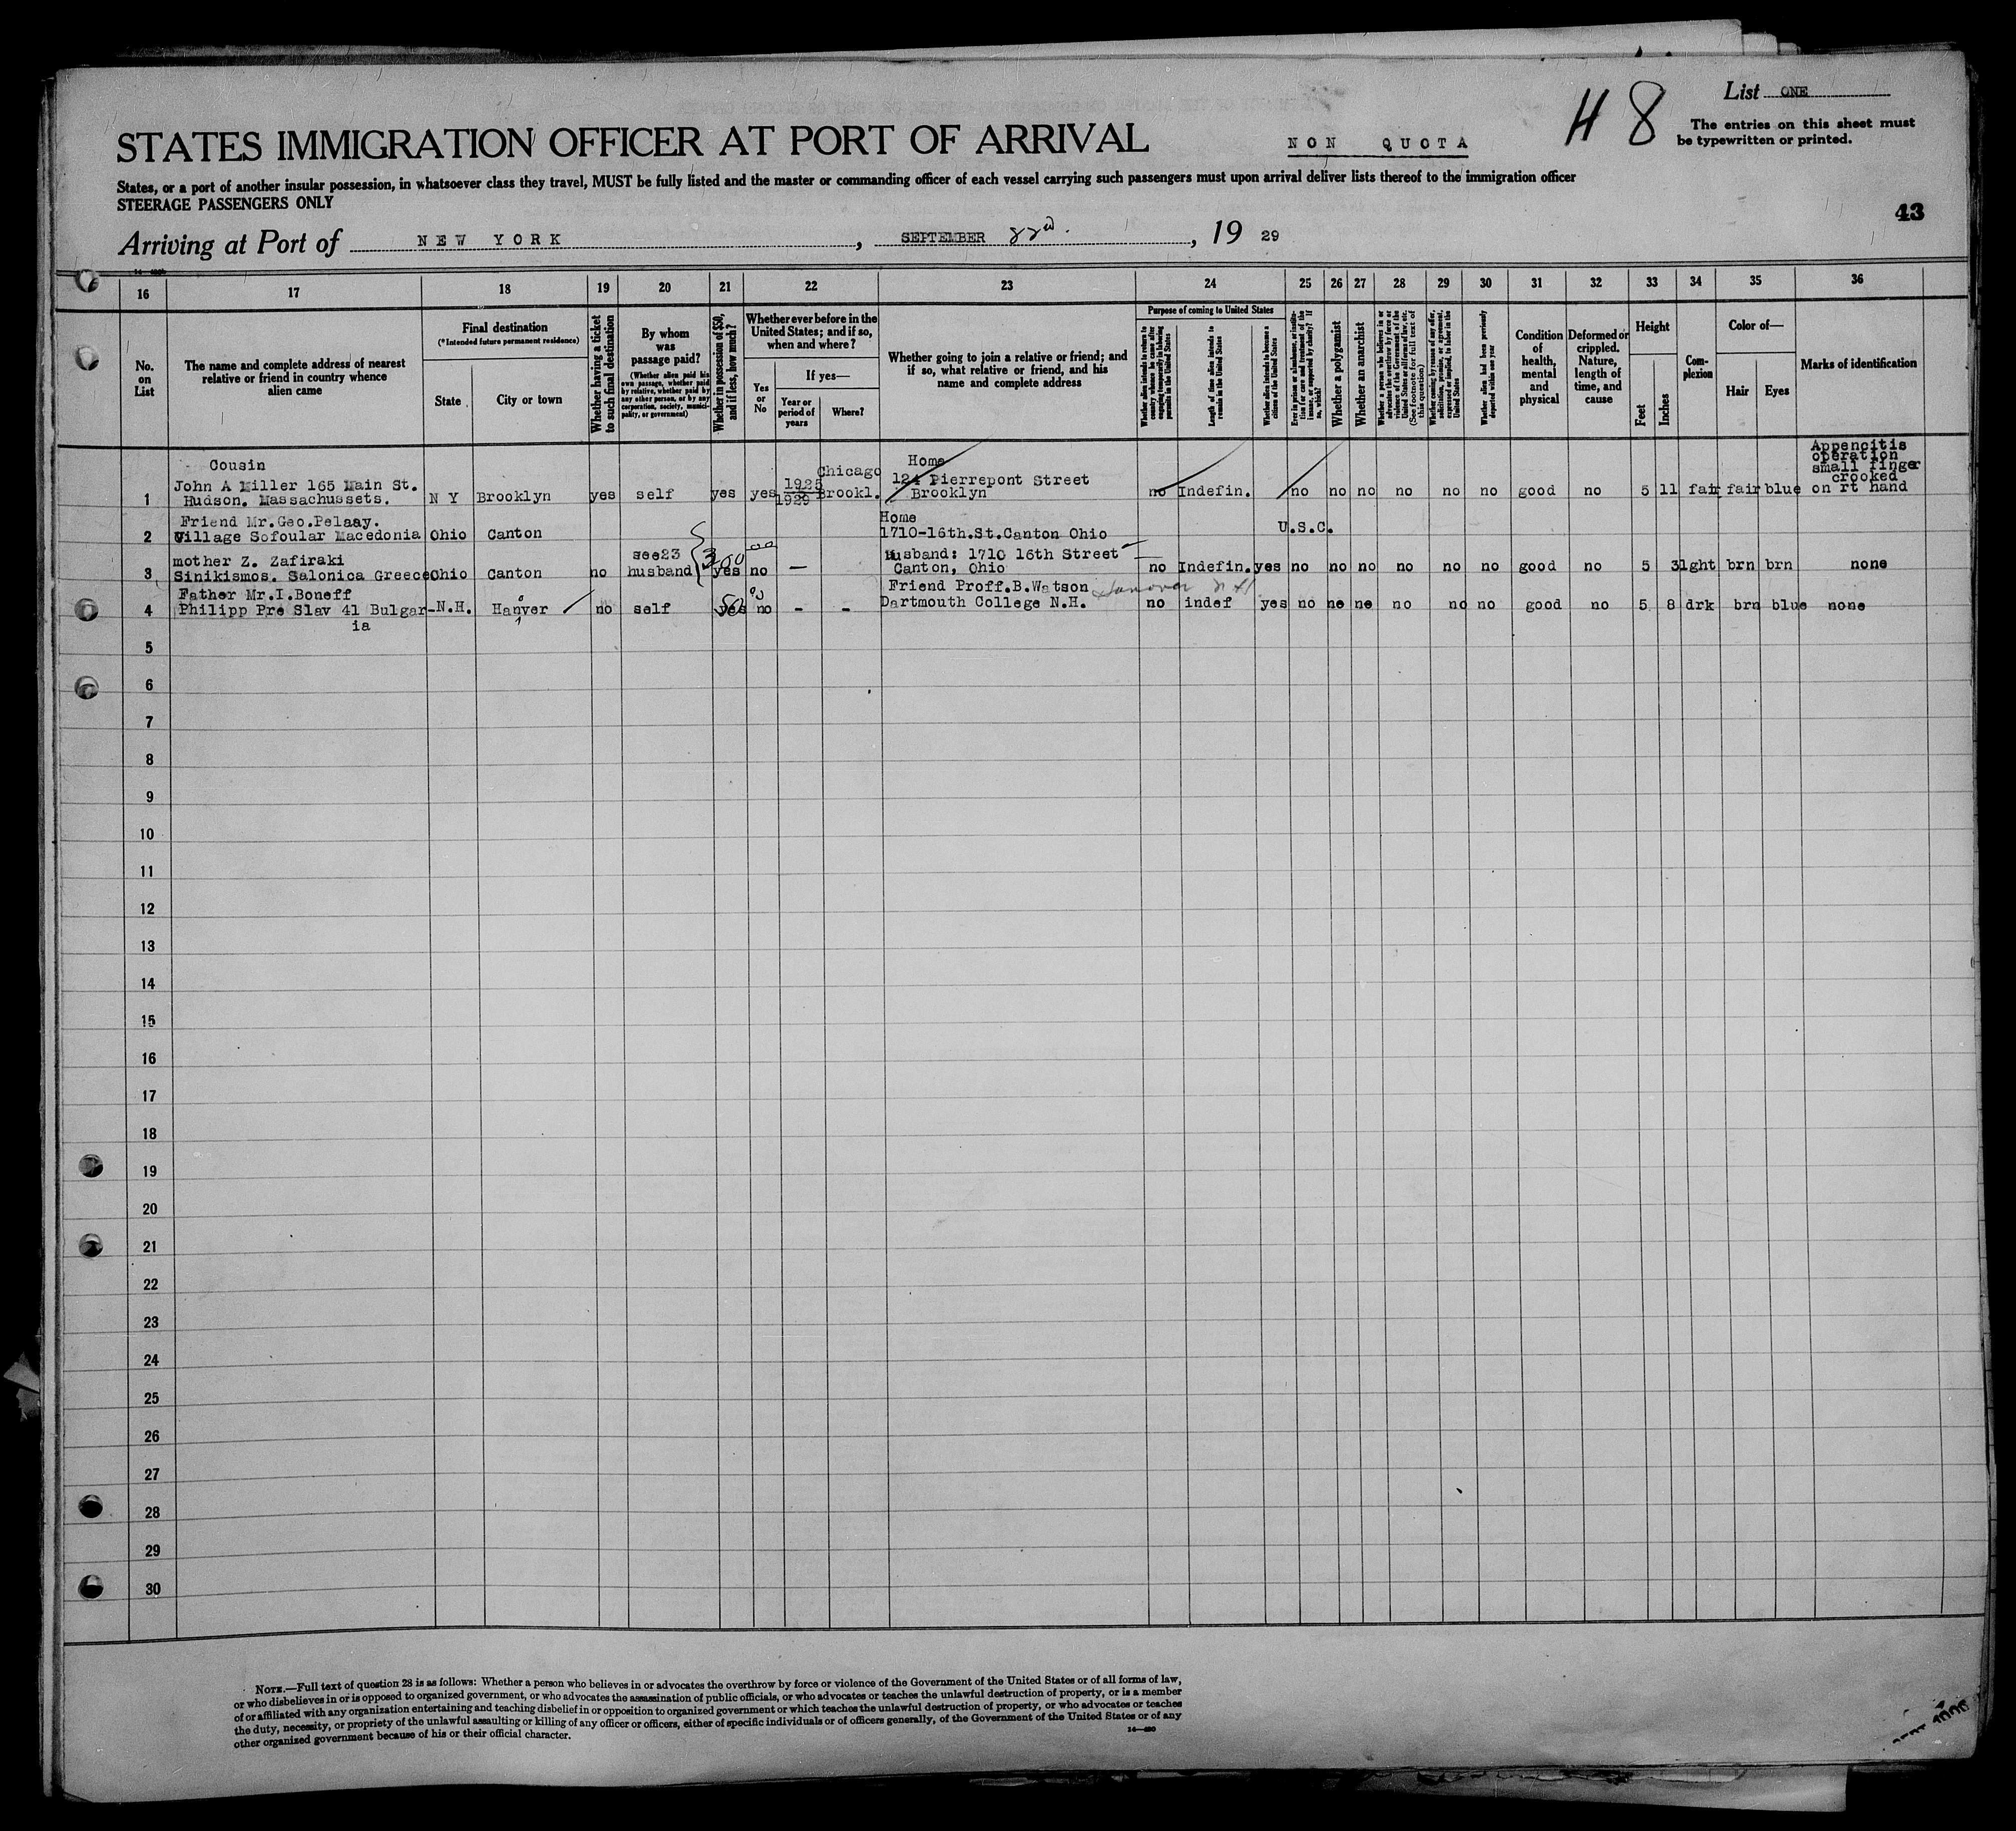 List ONE
H 8
The entries on this sheet must
be typewritten or printed.
STATES IMMIGRATION OFFICER AT PORT OF ARRIVAL
NON QUOTA
States, or a port of another insular possession, in whatsoever class they travel, MUST be fully listed and the master or commanding officer of each vessel carrying such passengers must upon arrival deliver lists thereof to the immigration officer
STEERAGE PASSENGERS ONLY
43
Arriving at Port of NEW YORK, SEPTEMBER 22nd, 19 29
16 17 18 19 20 21 22 23 24 25 26 27 28 29 30 31 32 33 34 35 36
No.
on
List
The name and complete address of nearest
relative or friend in country whence
alien came
Final destination
(*Intended future permanent residence)
State
City or town
Whether having a ticket
to such final destination
By whom
was
passage paid?
(Whether alien paid his
own passage, whether paid
by relative, whether paid by
any other person, or by any
corporation, society, munici-
pality, or government)
Whether in possession of $50,
and if less, how much?
Whether ever before in the
United States; and if so,
when and where?
Yes
or
No
If yes—
Year or
period of
years
Where?
Whether going to join a relative or friend; and
if so, what relative or friend, and his
name and complete address
Purpose of coming to United States
Whether alien intends to return to
country whence he came after
engaging temporarily in laboring
pursuits in the United States
Length of time alien intends to
remain in the United States
Whether alien intends to become a
citizen of the United States
Ever in prison or almshouse, or institu-
tion for care and treatment of the
insane, or supported by charity? If
so, which?
Whether a polygamist
Whether an anarchist
Whether a person who believes in or
advocates the overthrow by force or
violence of the Government of the
United States or of all forms of law, etc.
(See footnote for full text of
this question)
Whether coming by reason of any offer,
solicitation, promise, or agreement,
expressed or implied, to labor in the
United States
Whether alien had been previously
deported within one year
Condition
of
health,
mental
and
physical
Deformed or
crippled.
Nature,
length of
time, and
cause
Height
Feet
Inches
Com-
plexion
Color of—
Hair
Eyes
Marks of identification
Cousin
John A Miller 165 Main St.
1 Hudson. Massachussets. N Y Brooklyn yes self yes yes 1925 1929 Chicago Brookl.
Home
124 Pierrepont Street
Brooklyn
no Indefin. no no no no no no good no 5 11 fair fair blue
Appencitis
operation
small finger
crooked
on rt hand
Friend Mr.Geo.Pelaay.
2 Village Sofoular Macedonia Ohio Canton
Home
1710-16th.St.Canton Ohio
U.S.C.
mother Z. Zafiraki
3 Sinikismos. Salonica Greece Ohio Canton no see23 husband 300 yes no —
Husband: 1710 16th Street
Canton, Ohio
no Indefin. yes no no no no no no good no 5 3 lght brn brn none
Father Mr.I.Boneff
4 Philipp Pre Slav 41 Bulgar-
ia
N.H. Hanver o no self 50 yes no - -
Friend Proff.B.Watson Hanover N H
Dartmouth College N.H.
no indef yes no no no no no no good no 5 8 drk brn blue none
5
6
7
8
9
10
11
12
13
14
15
16
17
18
19
20
21
22
23
24
25
26
27
28
29
30
NOTE.—Full text of question 28 is as follows: Whether a person who believes in or advocates the overthrow by force or violence of the Government of the United States or of all forms of law,
or who disbelieves in or is opposed to organized government, or who advocates the assassination of public officials, or who advocates or teaches the unlawful destruction of property, or is a member
of or affiliated with any organization entertaining and teaching disbelief in or opposition to organized government or which teaches the unlawful destruction of property, or who advocates or teaches
the duty, necessity, or propriety of the unlawful assaulting or killing of any officer or officers, either of specific individuals or of officers generally, of the Government of the United States or of any
other organized government because of his or their official character.
14—490